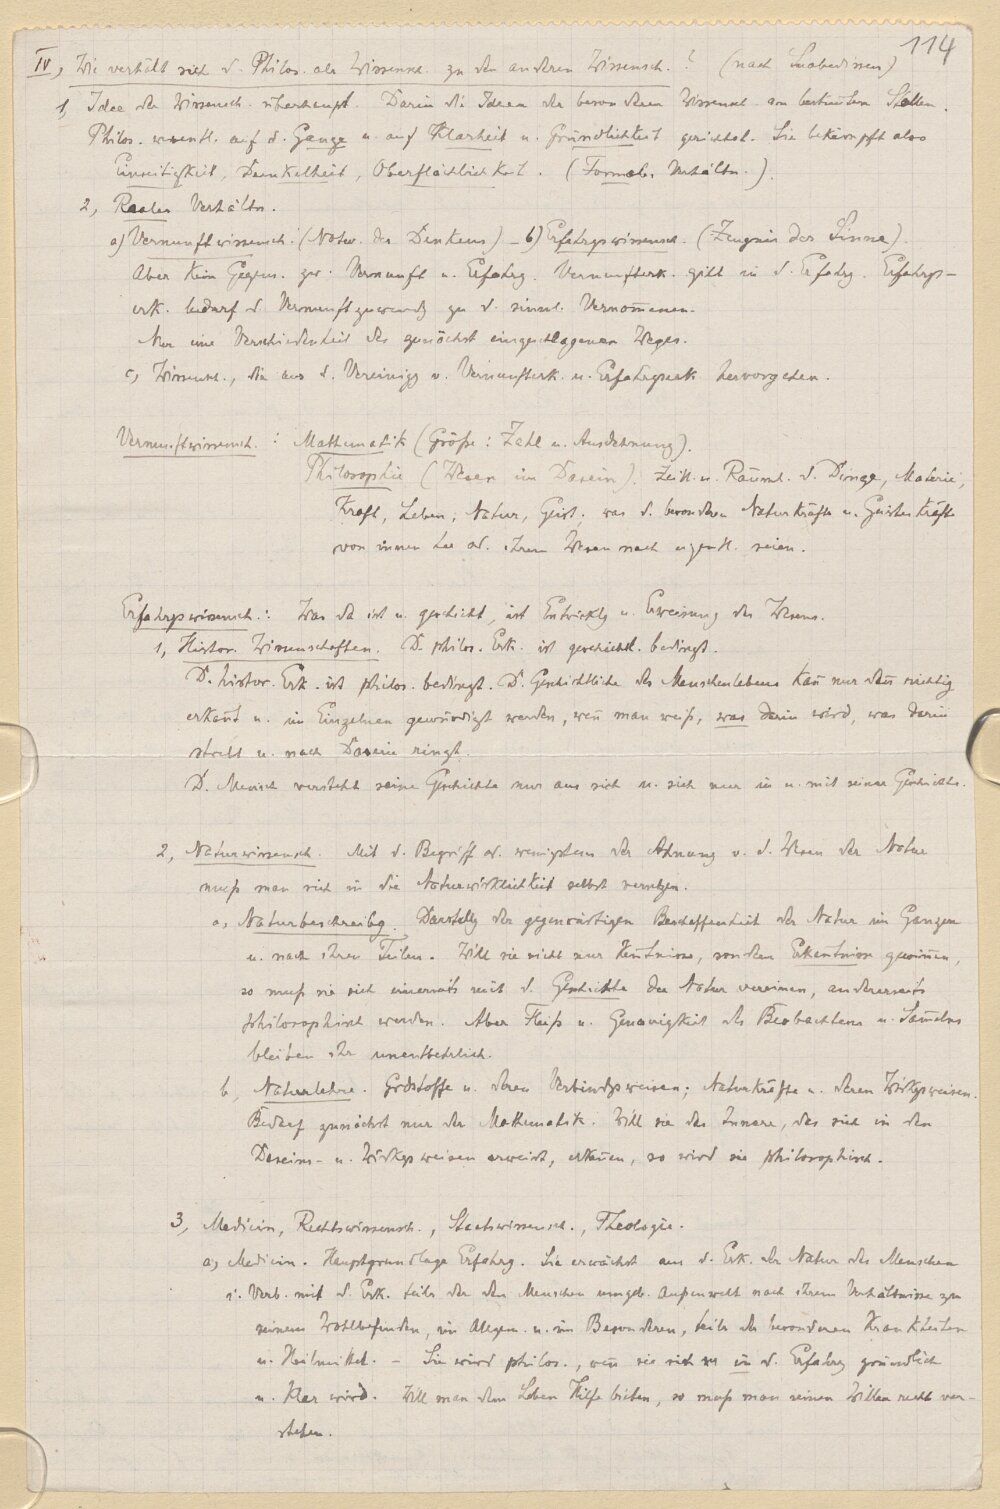 114
IV, Wie verhält sich d. Philos. als Wissensch. zu den anderen Wissensch.? (nach Suabedissen)
1, Idee der Wissensch. überhaupt. Darin die Ideen der besonderen Wissensch. am bestimmten Stellen.
Philos. wesentl. auf d. Ganze u. auf Klarheit u. Gründlichkeit gerichtet. Sie bekämpft also
Einseitigkeit, Dunkelheit, Oberflächlichkeit. (Formales Verhältn.)
2, Reales Verhältn.
a) Vernunftwissensch. (Notw. des Denkens) – b) Erfahrgswissensch. (Zeugnis der Sinne).
Aber kein Gegens. zw. Vernunft u. Erfahrg. Vernunfterk. gilt in d. Erfahrg. Erfahrgs-
erk. bedarf d. Vernunftzuwendg zu d. sinnl. Vernom̄enen.
Nur eine Verschiedenheit des zunächst eingeschlagenen Weges.
c, Wissensch., die aus d. Vereinigg v. Vernunfterk. u. Erfahrgserk. hervorgehen.
Vernunftwissensch. : Mathematik (Größe: Zahl u. Ausdehnung).
Philosophie (Wesen im Dasein): Zeitl. u. Räuml. d. Dinge, Materie,
Kraft, Leben, Natur, Geist, was d. besonderen Naturkräfte u. Geisteskräfte
von innen her od. ihrem Wesen nach eigentl. seien.
Erfahrgswissensch.: Was da ist u. geschieht, ist Entwicklg u. Erweisung des Wesens.
1, Histor. Wissenschaften. D. philos. Erk. ist geschichtl. bedingt.
D. histor. Erk. ist philos. bedingt. D. Geschichtliche des Menschenlebens kan̄ nur dan̄ richtig
erkan̄t u. im Einzelnen gewürdigt werden, wen̄ man weiß, was darin wird, was darin
strebt u. nach Dasein ringt.
D. Mensch versteht seine Geschichte nur aus sich u. sich nur in u. mit seiner Geschichte.
2, Naturwissensch. Mit d. Begriff od. wenigstens der Ahnung v. d. Wesen der Natur
muß man sich in die Naturwirklichkeit selbst versetzen.
a, Naturbeschreibg. Darstellg der gegenwärtigen Beschaffenheit der Natur im Ganzen
u. nach ihren Teilen. Will sie nicht nur Ken̄tnisse, sondern Erken̄tnisse gewin̄en,
so muß sie sich einerseits mit d. Geschichte der Natur vereinen, andererseits
philosophisch werden. Aber Fleiß u. Genauigkeit des Beobachtens u. Sam̄elns
bleiben ihr unentbehrlich.
b, Naturlehre. Grdstoffe u. deren Verbindgsweisen; Naturkräfte u. deren Wirkgsweisen.
Bedarf zunächst nur der Mathematik. Will sie das Innere, das sich in den
Daseins- u. Wirkgsweisen erweist, erken̄en, so wird sie philosophisch.
3, Medicin, Rechtswissensch., Staatswissensch., Theologie.
a, Medicin. Hauptgrundlage Erfahrg. Sie erwächst aus d. Erk. der Natur des Menschen
i. Verb. mit d. Erk. teils der den Menschen umgeb. Außenwelt nach ihrem Verhältnisse zu
seinem Wohlbefinden, im Allgem. u. im Besonderen, teils der besonderen Krankheiten
u. Heilmittel. – Sie wird philos., wen̄ sie sich in d. Erfahrg gründlich
u. klar wird. Will man dem Leben Hilfe bieten, so muß man seinen Willen recht ver-
stehen.